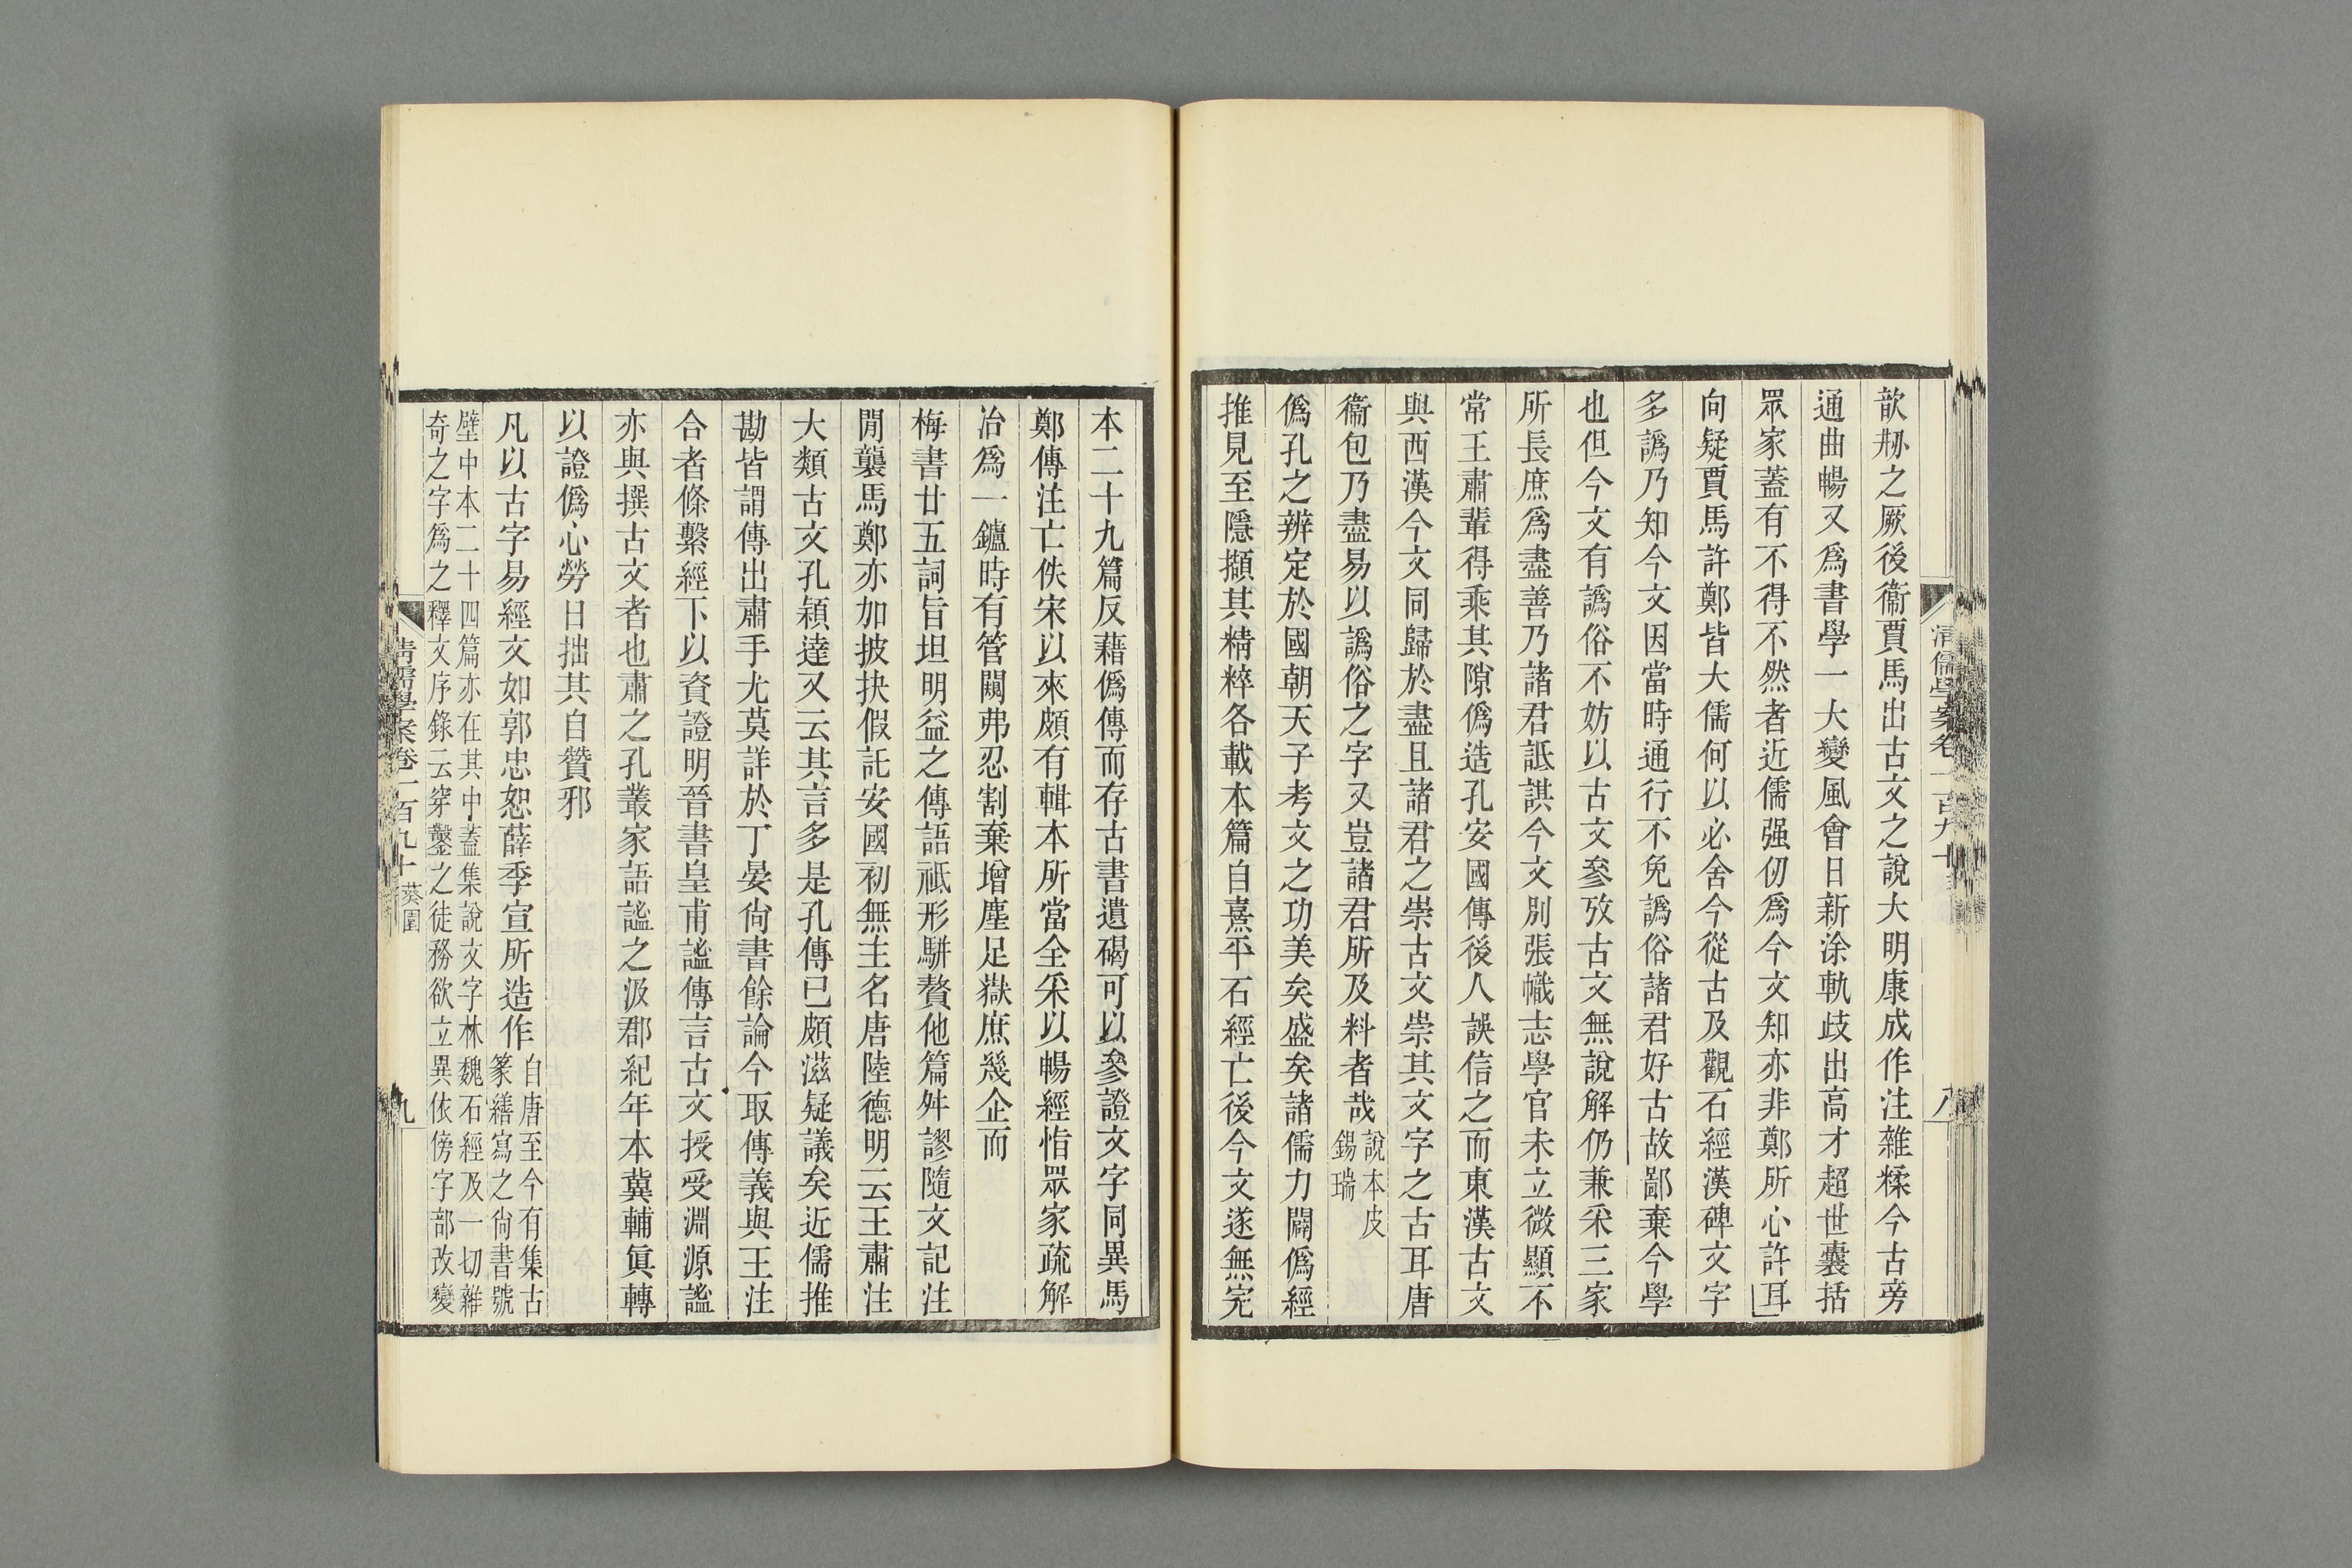 歆刱之厥後衞賈馬出古文之說大明康成作注雜糅今古旁
通曲暢又爲書學一大變風會日新涂軌歧出高才超世囊括
眾家蓋有不得不然者近儒强仞爲今文知亦非鄭所心許耳
向疑賈馬許鄭皆大儒何以必舍今從古及觀石經漢碑文字
多譌乃知今文因當時通行不免譌俗諸君好古故鄙棄今學
也但今文有譌俗不妨以古文參攷古文無說解仍兼采三家
所長庶爲盡善乃諸君詆諆今文別張幟志學官未立微顯不
常王肅輩得乘其隙僞造孔安國傳後人誤信之而東漢古文
與西漢今文同歸於盡且諸君之崇古文崇其文字之古耳唐
衞包乃盡易以譌俗之字又豈諸君所及料者哉說本皮錫瑞
僞孔之辨定於國朝天子考文之功美矣盛矣諸儒力闢僞經
推見至隱擷其精粹各載本篇自熹平石經亡後今文遂無完
清儒學案卷一百九十
八
本二十九篇反藉僞傳而存古書遺碣可以參證文字同異馬
鄭傳注亡佚宋以來頗有輯本所當全采以暢經恉眾家疏解
冶爲一鑪時有管闚弗忍割棄增塵足嶽庶幾企而
梅書廿五詞旨坦明益之傳語祗形駢贅他篇舛謬隨文記注
閒襲馬鄭亦加披抉假託安國初無主名唐陸德明云王肅注
大類古文孔穎達又云其言多是孔傳已頗滋疑議矣近儒推
勘皆謂傳出肅手尤莫詳於丁晏尙書餘論今取傳義與王注
合者條繫經下以資證明晉書皇甫謐傳言古文授受淵源謐
亦與撰古文者也肅之孔叢家語謐之汲郡紀年本冀輔眞轉
以證僞心勞日拙其自贊邪
凡以古字易經文如郭忠恕薛季宣所造作自唐至今有集古
篆繕寫之尙書號
壁中本二十四篇亦在其中蓋集說文字林魏石經及一切雜
奇之字爲之釋文序錄云穿鑿之徒務欲立異依傍字部改變
清儒學案卷一百九十 葵園
九